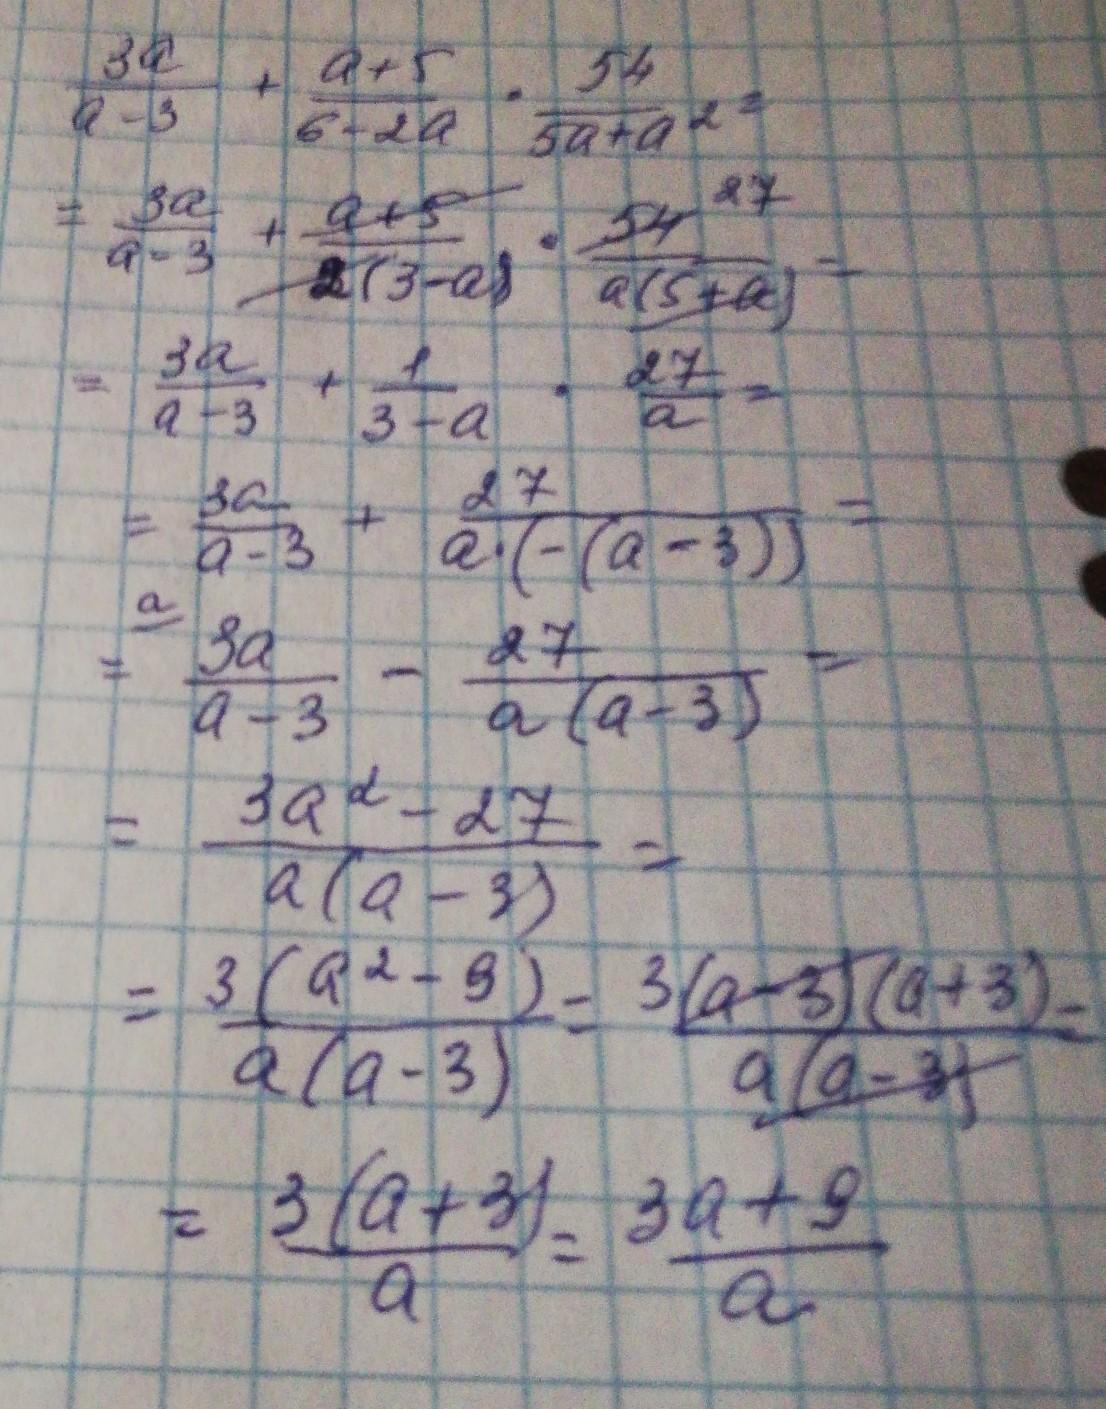 3a/(a-3) + (a+5)/(6-2a) · 54/(5a+a²) =
= 3a/(a-3) + (a+5)/(2(3-a)) · 54 27/(a(5+a)) =
= 3a/(a-3) + 1/(3-a) · 27/a =
= 3a/(a-3) + 27/(a·(-(a-3))) =
= a 3a/(a-3) - 27/(a(a-3)) =
= (3a²-27)/(a(a-3)) =
= 3(a²-9)/(a(a-3)) = 3(a-3)(a+3)/(a(a-3)) =
= 3(a+3)/a = (3a+9)/a